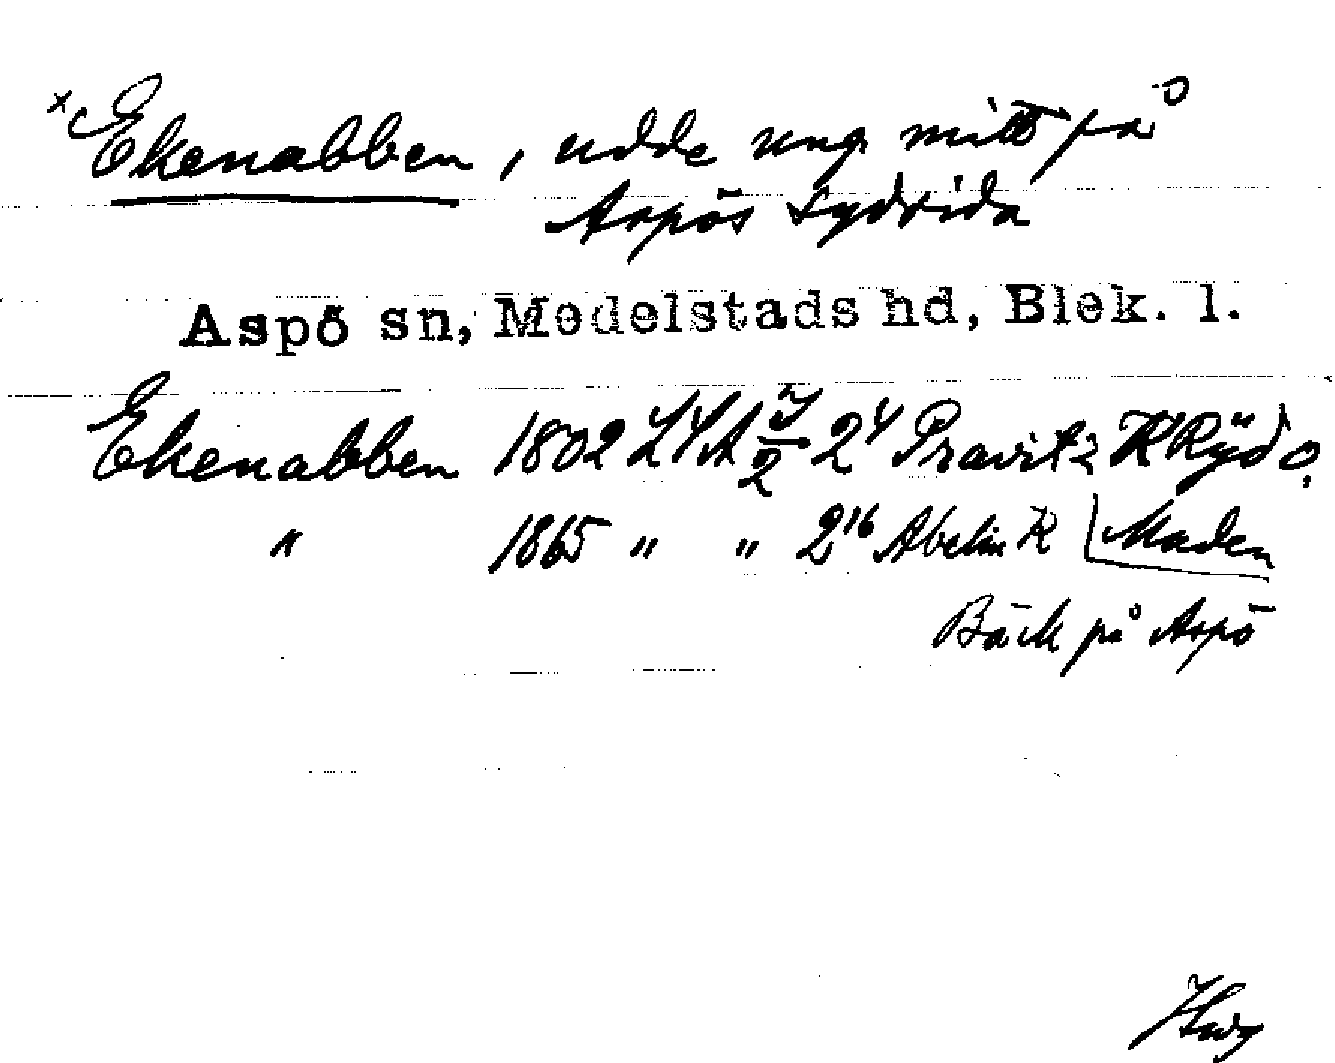 x Ekenabben, udde ung. mitt på
Aspös sydsida
Aspö sn, Medelstads hd, Blek. l.
Ekenabben 1802 LSA 2⁴ Pravitz K Ryd ö.
" 1865 " " 2¹⁶ Abelin K Maden
Bäck på Aspö